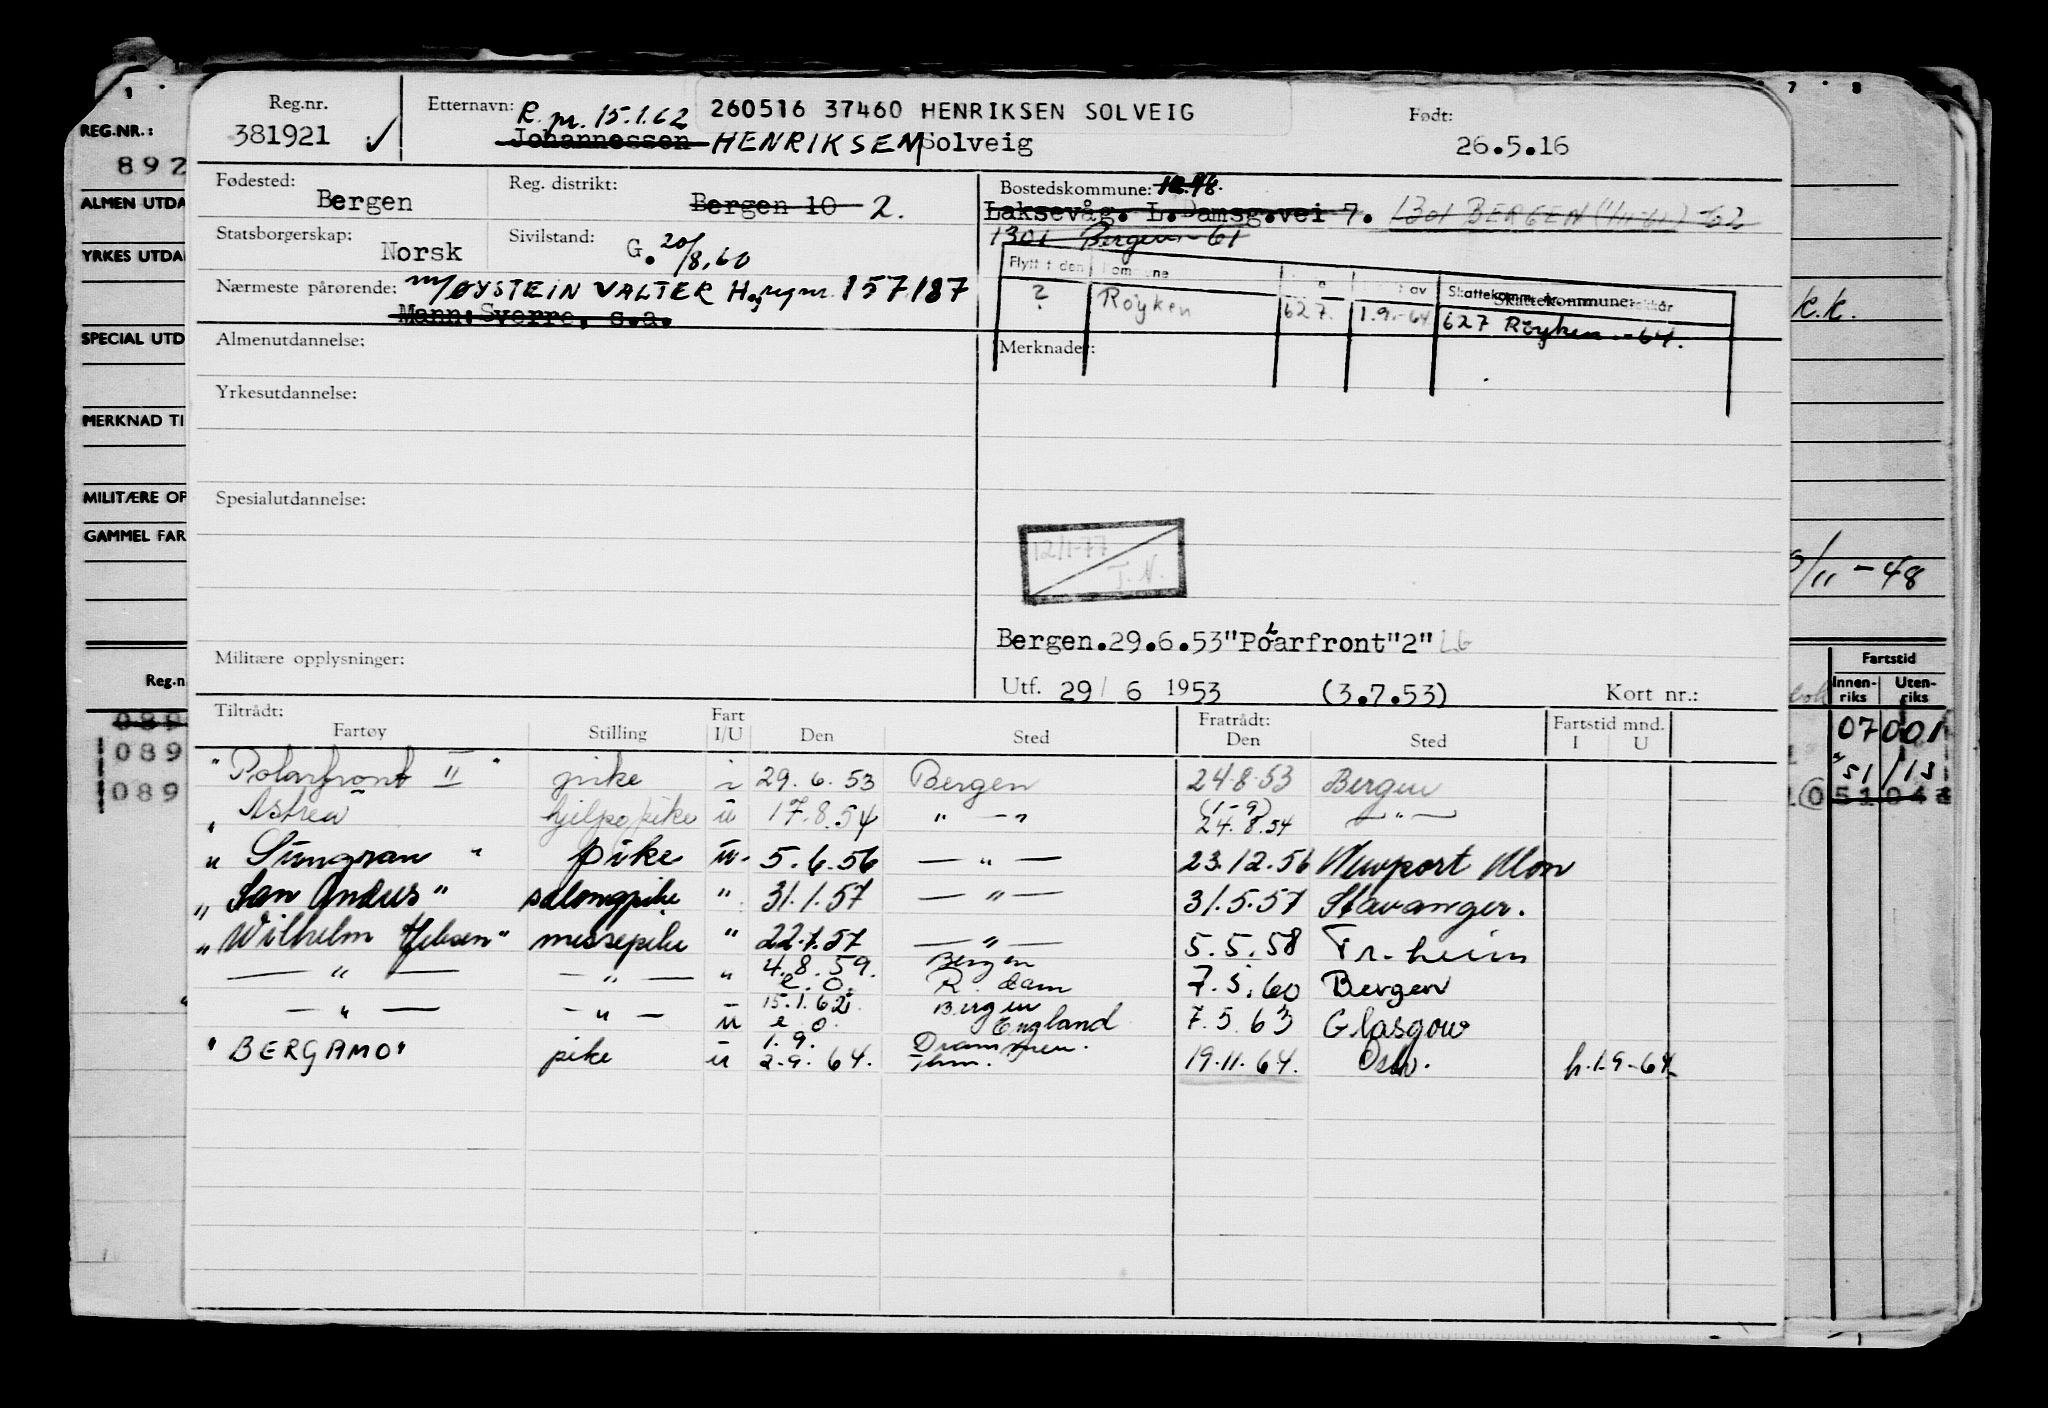 Reg.nr.
381921 ✓
Etternavn: R. pr. 15.1.62
260516 37460 HENRIKSEN SOLVEIG
Johannessen HENRIKSEN Solveig
Født:
26.5.16
Fødested:
Bergen
Reg. distrikt:
Bergen 10 2.
Bostedskommune:
Laksevåg. L.Damsg.vei 7. 1301 BERGEN (1/11-61) -62
1301 Bergen - 61
Statsborgerskap:
Norsk
Sivilstand:
G. 20/8.60
Nærmeste pårørende: m/ØYSTEIN VALTER H. reg nr. 157187
Mann: Sverre, s.a.
Flytt t den
Skattekommune:
? Røyken 627. 1.9.-64 627 Røyken - 64.
Almenutdannelse:
Merknader:
Yrkesutdannelse:
Spesialutdannelse:
12/1-77
T.N.
Bergen.29.6.53"Polarfront"2" LG
Militære opplysninger:
Utf. 29/ 6 1953 (3.7.53) Kort nr.:
Tiltrådt:
Fartøy Stilling Fart I/U Den Sted
Fratrådt:
Den Sted
Fartstid mnd.
I U
"Polarfront II" pike i 29.6.53 Bergen 24.8.53 Bergen
" Astrea hjelpepike u 17.8.54 " — " (1-9) 24.8.54 — " —
" Sungran " pike u. 5.6.56 — " — 23.12.56 Newport Mon
" San Andres" salongpike " 31.1.57 — " — 31.5.57 Stavanger.
" Wilhelm Jebsen" messepike " 22.7.57 — " — 5.5.58 Tr.heim
— " — — " — " 4.8.59. Bergen
e. o. R.dam 7.5.60 Bergen
— " — — " — 15.1.62 Bergen
u e o. England 7.5.63 Glasgow
"BERGAMO" pike u 1.9. Drammen.
2.9.64. 19.11.64. Oslo. h.1.9-64
REG.NR.:
892
ALMEN UTDA
YRKES UTDA
SPECIAL UTD
MERKNAD TI
MILITÆRE OP
GAMMEL FAR
Reg.n
089
089
089
7 8
k.k.
/11 - 48
Fartstid
Innen-riks Uten-riks
07 001
51 /13
51 04